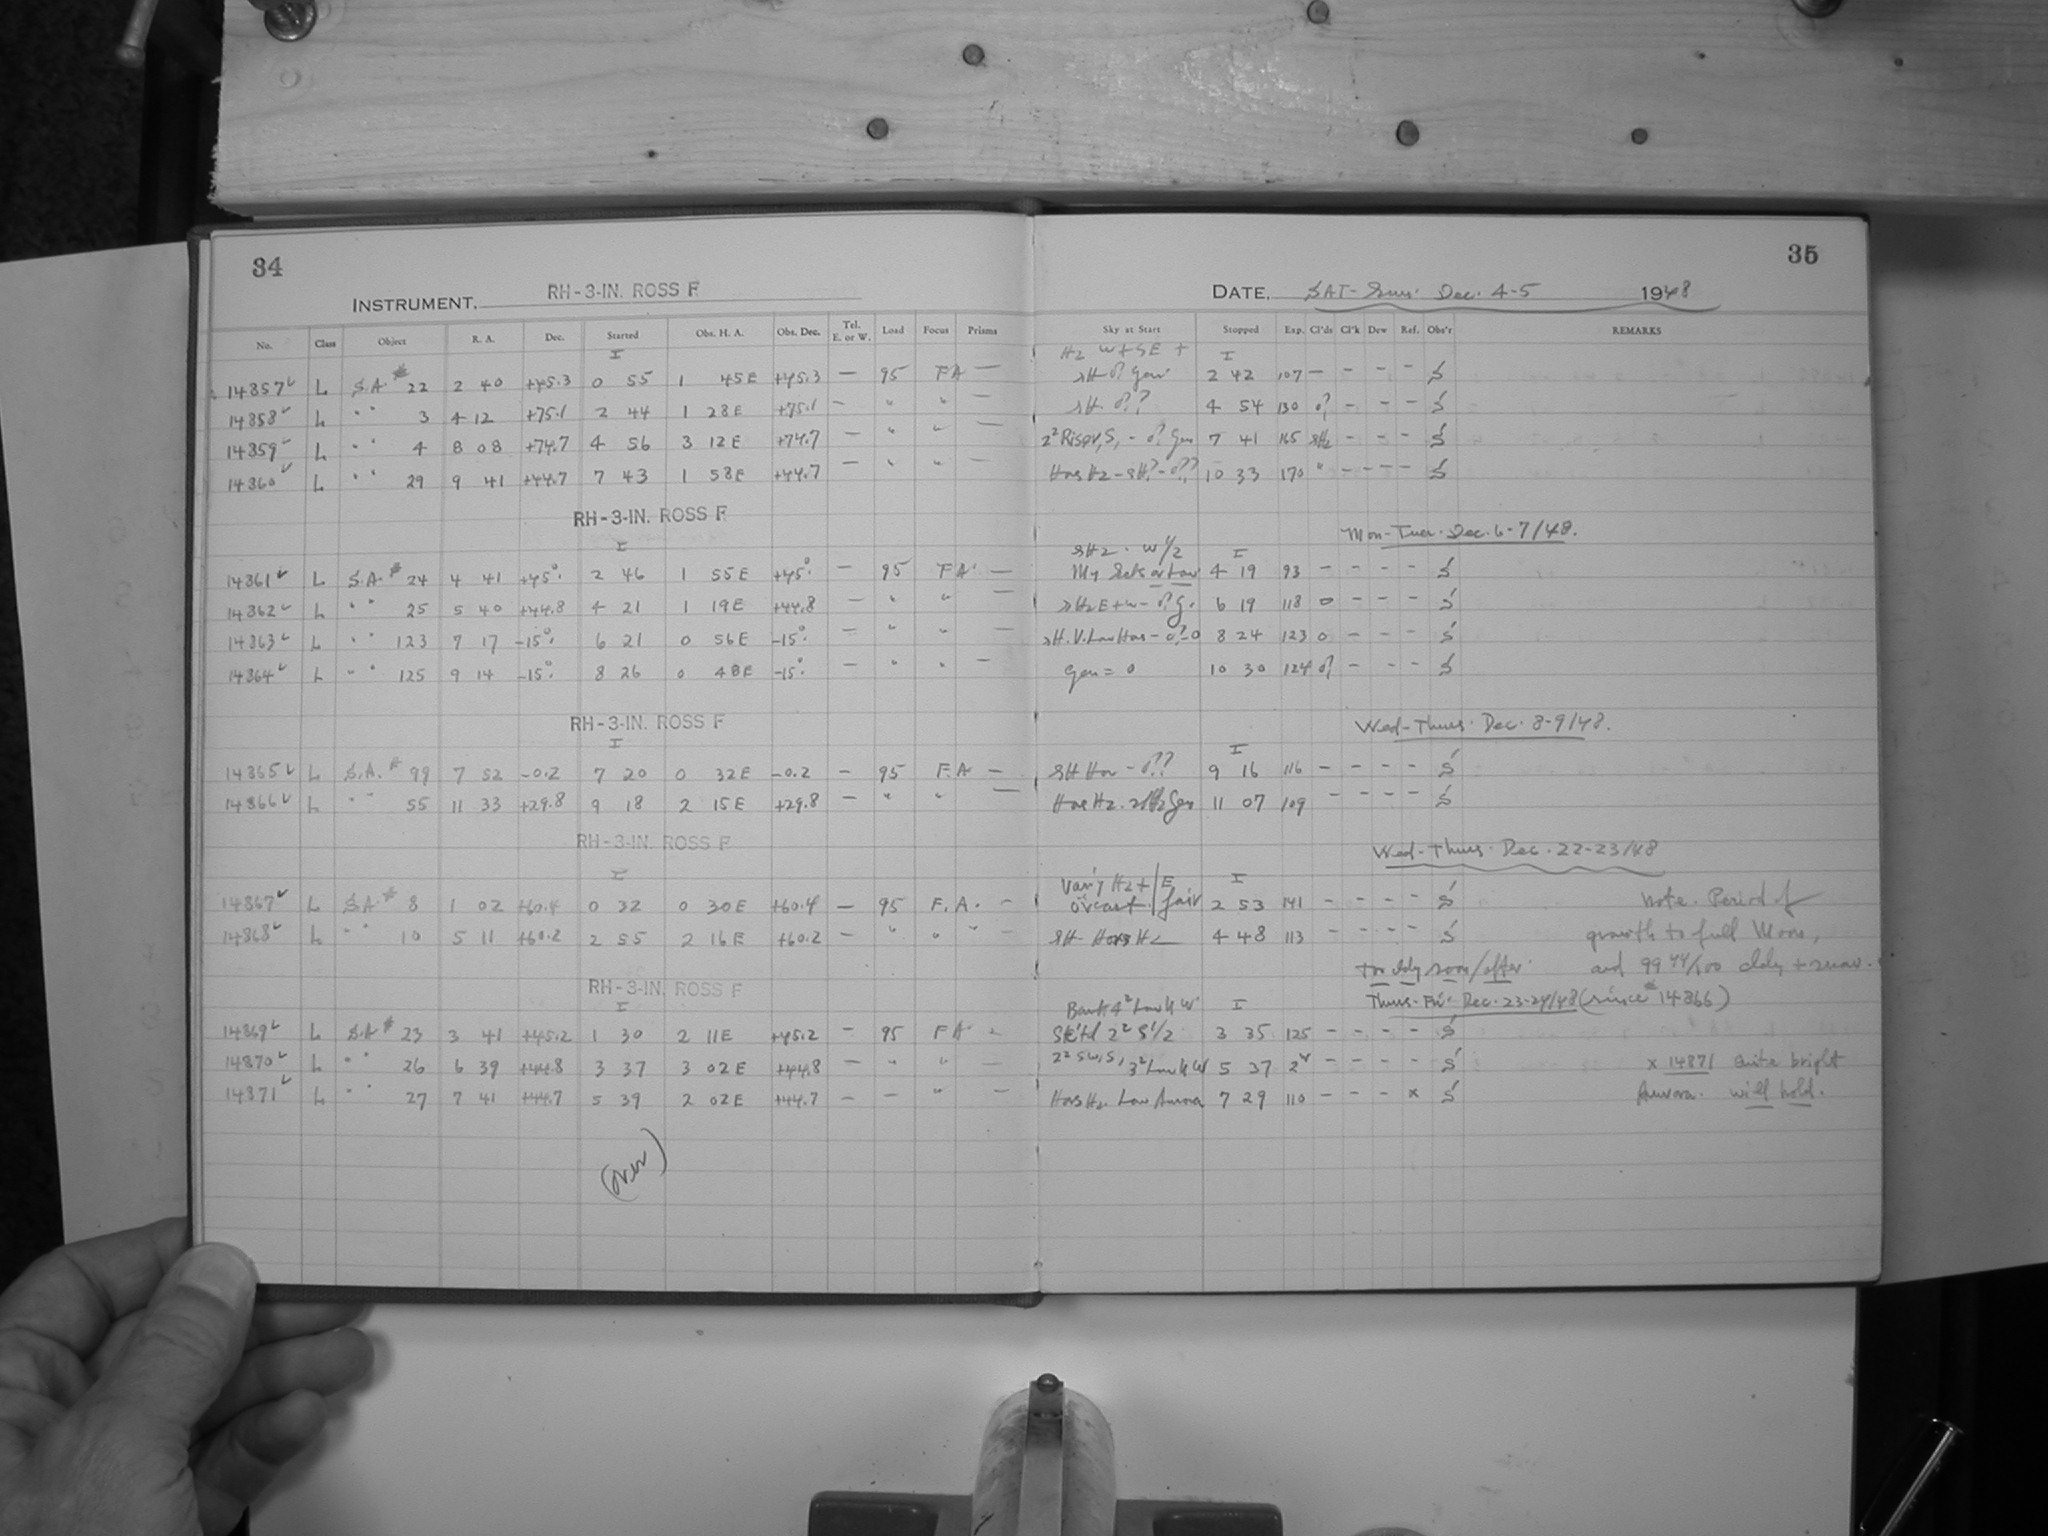 34
INSTRUMENT. RH-3-IN. ROSS F
No. Class Object R. A. Dec. Started Obs. H. A. Obs. Dec. Tel. E. or W. Load Focus Prisms
I
14857 L S.A. # 22 2 40 +45.3 0 55 1 45E +45.3 — 95 FA —
14858 L " " 3 4 12 +75.1 2 44 1 28E +75.1 — " " —
14859 L " " 4 8 08 +74.7 4 56 3 12E +74.7 — " " —
14860 L " " 29 9 41 +44.7 7 43 1 58E +44.7 — " " —
RH-3-IN. ROSS F
I
14861 L S.A. # 24 4 41 +45° 2 46 1 55E +45° — 95 FA —
14862 L " " 25 5 40 +44.8 4 21 1 19E +44.8 — " " —
14863 L " " 123 7 17 -15° 6 21 0 56E -15° — " " —
14864 L " " 125 9 14 -15° 8 26 0 48E -15° — " " —
RH-3-IN. ROSS F
I
14865 L S.A. # 99 7 52 -0.2 7 20 0 32E -0.2 — 95 F.A —
14866 L " " 55 11 33 +29.8 9 18 2 15E +29.8 — " " —
RH-3-IN. ROSS F
I
14867 L S.A. # 8 1 02 +60.4 0 32 0 30E +60.4 — 95 F.A. —
14868 L " " 10 5 11 +60.2 2 55 2 16E +60.2 — " " " —
RH-3-IN. ROSS F
I
14869 L S.A # 23 3 41 +45.2 1 30 2 11E +45.2 — 95 FA —
14870 L " " 26 6 39 +44.8 3 37 3 02E +44.8 — " " —
14871 L " " 27 7 41 +44.7 5 39 2 02E +44.7 — — " —
(over)
35
DATE. SAT-Sun. Dec. 4-5 1948
Sky at Start Stopped Exp. Cl'ds Cl'k Dew Ref. Obs'r REMARKS
Hz W+SE + I
2 42 107 — — — — S
4 54 130 — — — S
7 41 165 — — — S
10 33 170 " — — — S
Mon-Tues. Dec. 6-7/48.
sHz. W 1/2 I
4 19 93 — — — — S
6 19 118 0 — — — S
8 24 123 0 — — — S
Gen = 0 10 30 124 — — — S
Wed-Thurs. Dec. 8-9/48.
I
9 16 116 — — — — S
11 07 109 — — — — S
Wed-Thurs. Dec. 22-23/48
Var'y Hz + E I
ovcast fair 2 53 141 — — — — S Note. Period of
sH- Hz 4 48 113 — — — — S growth to full Moon,
Too cldy soon/after. and 99 44/100 cldy +
Bank 4² Low W I Thurs-Fri. Dec. 23-24/48 (since # 14866)
Sk'td 2² S 1/2 3 35 125 — — — — S
2² SW, S, 3² Low W 5 37 2 — — — — S x 14871 Quite bright
Low Aurora 7 29 110 — — — x S Aurora. will hold.